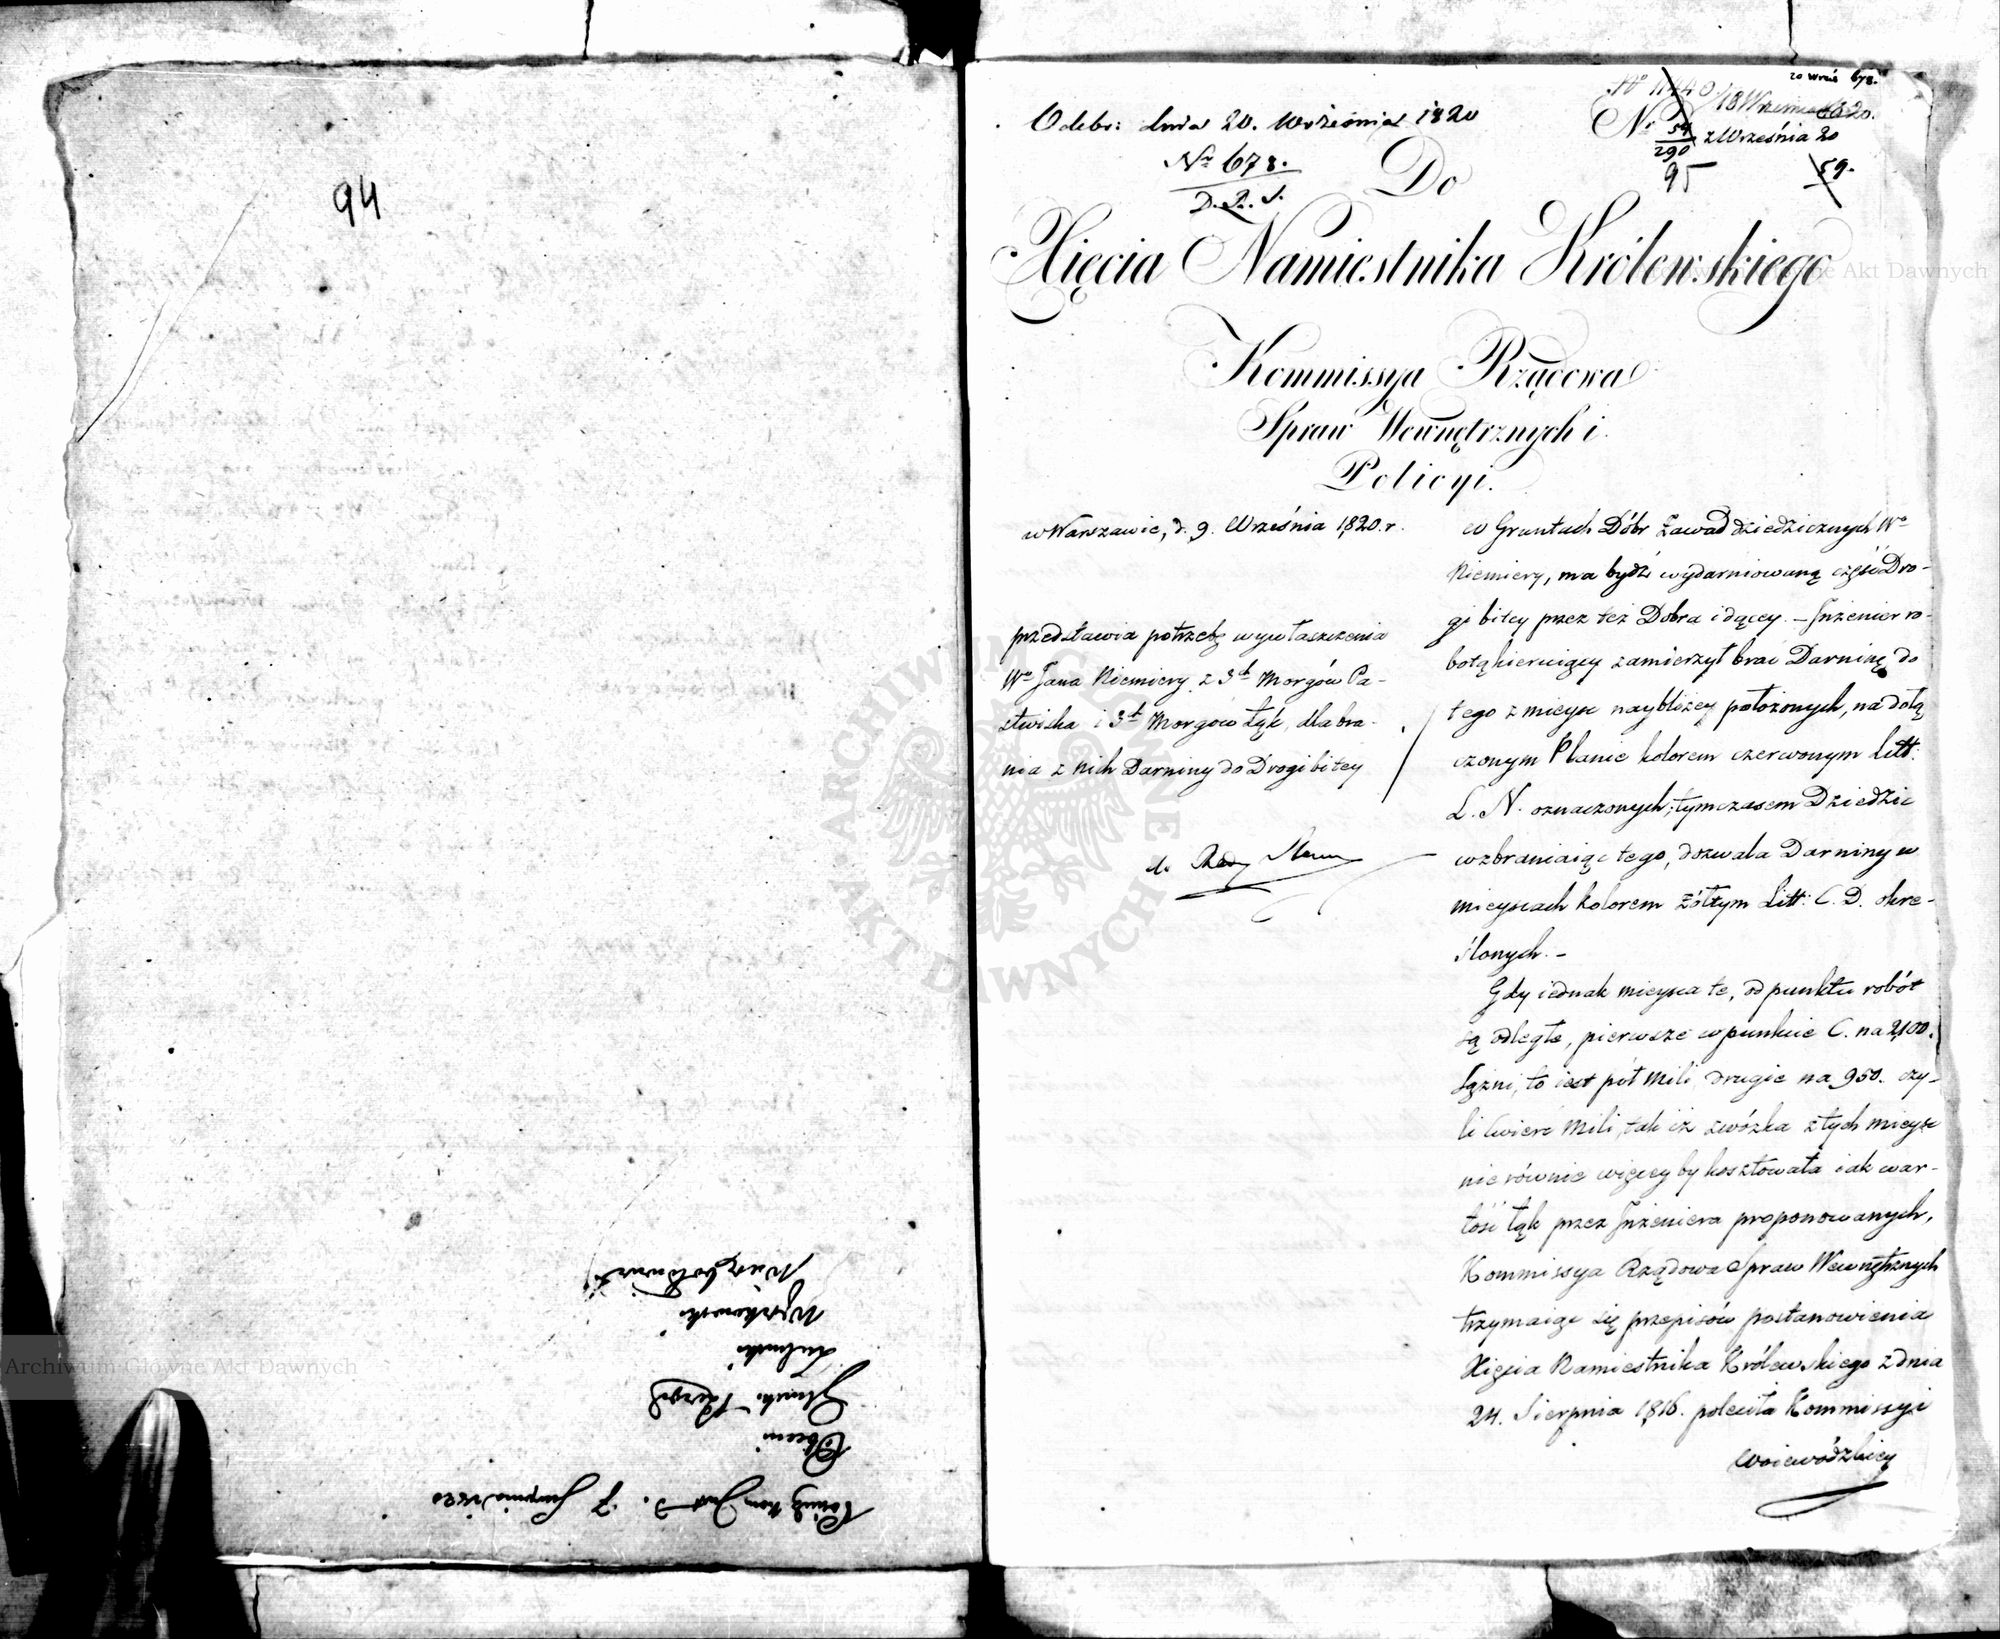 94
Odebr: dnia 20. Września 1820
Nr 678.
D. R. S.
20 Wrześ 678.
No 11440/18 Września 1820.
Nr 54/290 z Września 20
95
59.
Do
Xięcia Namiestnika Królewskiego
Kommissya Rządowa
Spraw Wewnętrznych i
Policyi.
w Warszawie, d. 9. Września 1820. r.
przedstawia potrzebę wywłaszczenia
Wo Jana Niemiery z 3ch Morgów Pa-
stwiska i 3ch Morgów Łąk, dla bra-
nia z nich Darniny do Drogi bitey
do Rady Stanu
w Gruntach Dóbr Zawad dziedzicznych Wo
Niemiery, ma bydź wydarniowaną część Dro-
gi bitey przez też Dobra idącey. – Inżenier ro-
botą kieruiący zamierzył brać Darninę do
tego z mieysc naybliżey położonych, na dołą
czonym Planie kolorem czerwonym Litt.
L. N. oznaczonych; tymczasem Dziedzic
wzbraniaiąc tego, dozwala Darniny w
mieyscach kolorem żółtym Litt: C. D. okre-
ślonych. –
Gdy iednak mieysca te, od punktu robót
są odległe, pierwsze w punkcie C. na 2,100.
Sążni, to iest pół Mili, drugie na 950. czy-
li ćwierć Mili, tak iż zwózka z tych mieysc
nierównie więcey by kosztowała iak war-
tość łąk przez Inżeniera proponowanych,
Kommissya Rządowa Spraw Wewnętrznych
trzymaiąc się przepisów postanowienia
Xięcia Namiestnika Królewskiego z dnia
24. Sierpnia 1816. poleciła Kommissyi
Woiewódzkiey
Obecni
Archiwum Główne Akt Dawnych
Archiwum Główne Akt Dawnych
ARCHIWUM GŁÓWNE AKT DAWNYCH